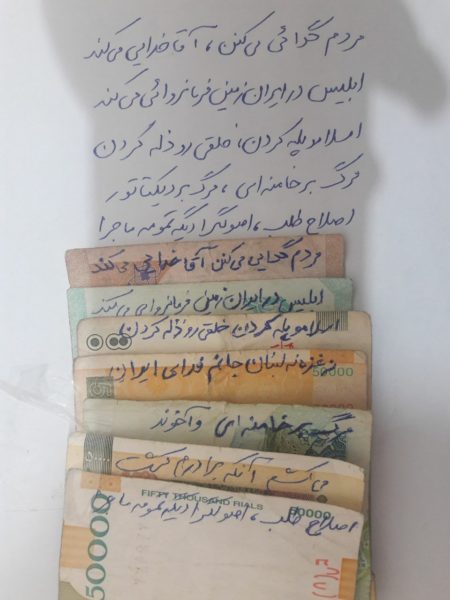 مردم گدائی می‌کنن، آقا خدایی می‌کند
ابلیس در ایران زمین فرمانروائی می‌کند
اسلامو پله کردن، خلقی رو ذله کردن
مرگ بر خامنه‌ای، مرگ بر دیکتاتور
اصلاح طلب، اصولگرا دیگه تمومه ماجرا
مردم گدایی می‌کنن آقا خدایی می‌کند
ابلیس در ایران زمین فرمانروایی می‌کند
اسلامو پله کردن خلقی رو ذله کردن
نه غزه نه لبنان جانم فدای ایران
50000
مرگ بر خامنه‌ای و آخوند
می‌کشم آنکه برادرم کشت
FIFTY THOUSAND RIALS
50000
50000
اصلاح طلب، اصولگرا دیگه تمومه ماجرا